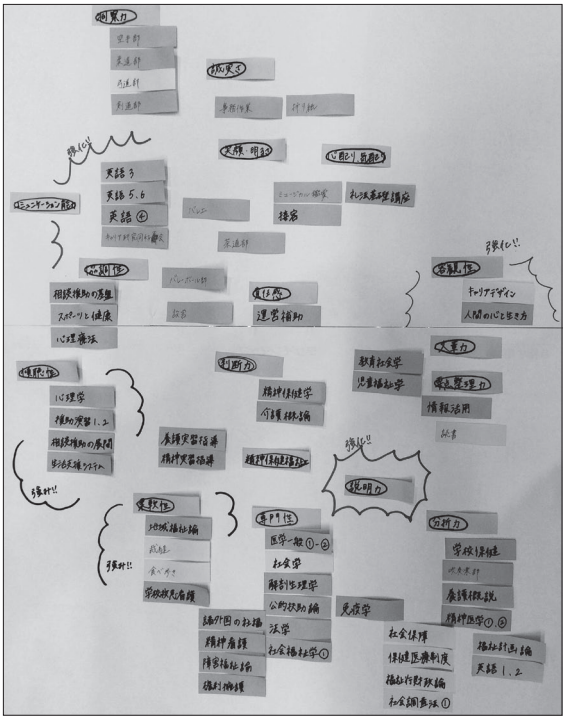 洞察力
空手部
柔道部
弓道部
剣道部
誠実さ
事務作業
強化!!
笑顔・明るさ
心配り、気配り
英語3
英語5、6
英語④
コミュニケーション能力
バレエ
ミュージカル鑑賞
接客
礼法基礎講座
茶道部
協調性
相談援助の基盤
スポーツと健康
心理療法
バレーボール部
読書
責任感
運営補助
客観性
強化!!
キャリアデザイン
人間の心と生き方
傾聴性
心理学
援助演習1、2
相談援助の展開
生活支援システム
強み!!
判断力
精神保健学
介護概論
養護実習指導
精神実習指導
精神保健福祉
教育社会学
児童福祉学
文章力
要点整理力
情報活用
読書
強化!!
説明力
柔軟性
地域福祉論
食べ歩き
学校救急看護
強み!!
専門性
医学一般①-②
社会学
解剖生理学
公的扶助論
法学
社会福祉学①
免疫学
諸外国の社福
精神看護
障害福祉論
分析力
学校保健
吹奏楽部
養護概説
精神医学①、②
社会保障
保健医療制度
福祉行財政論
社会調査法①
福祉計画論
英語1、2